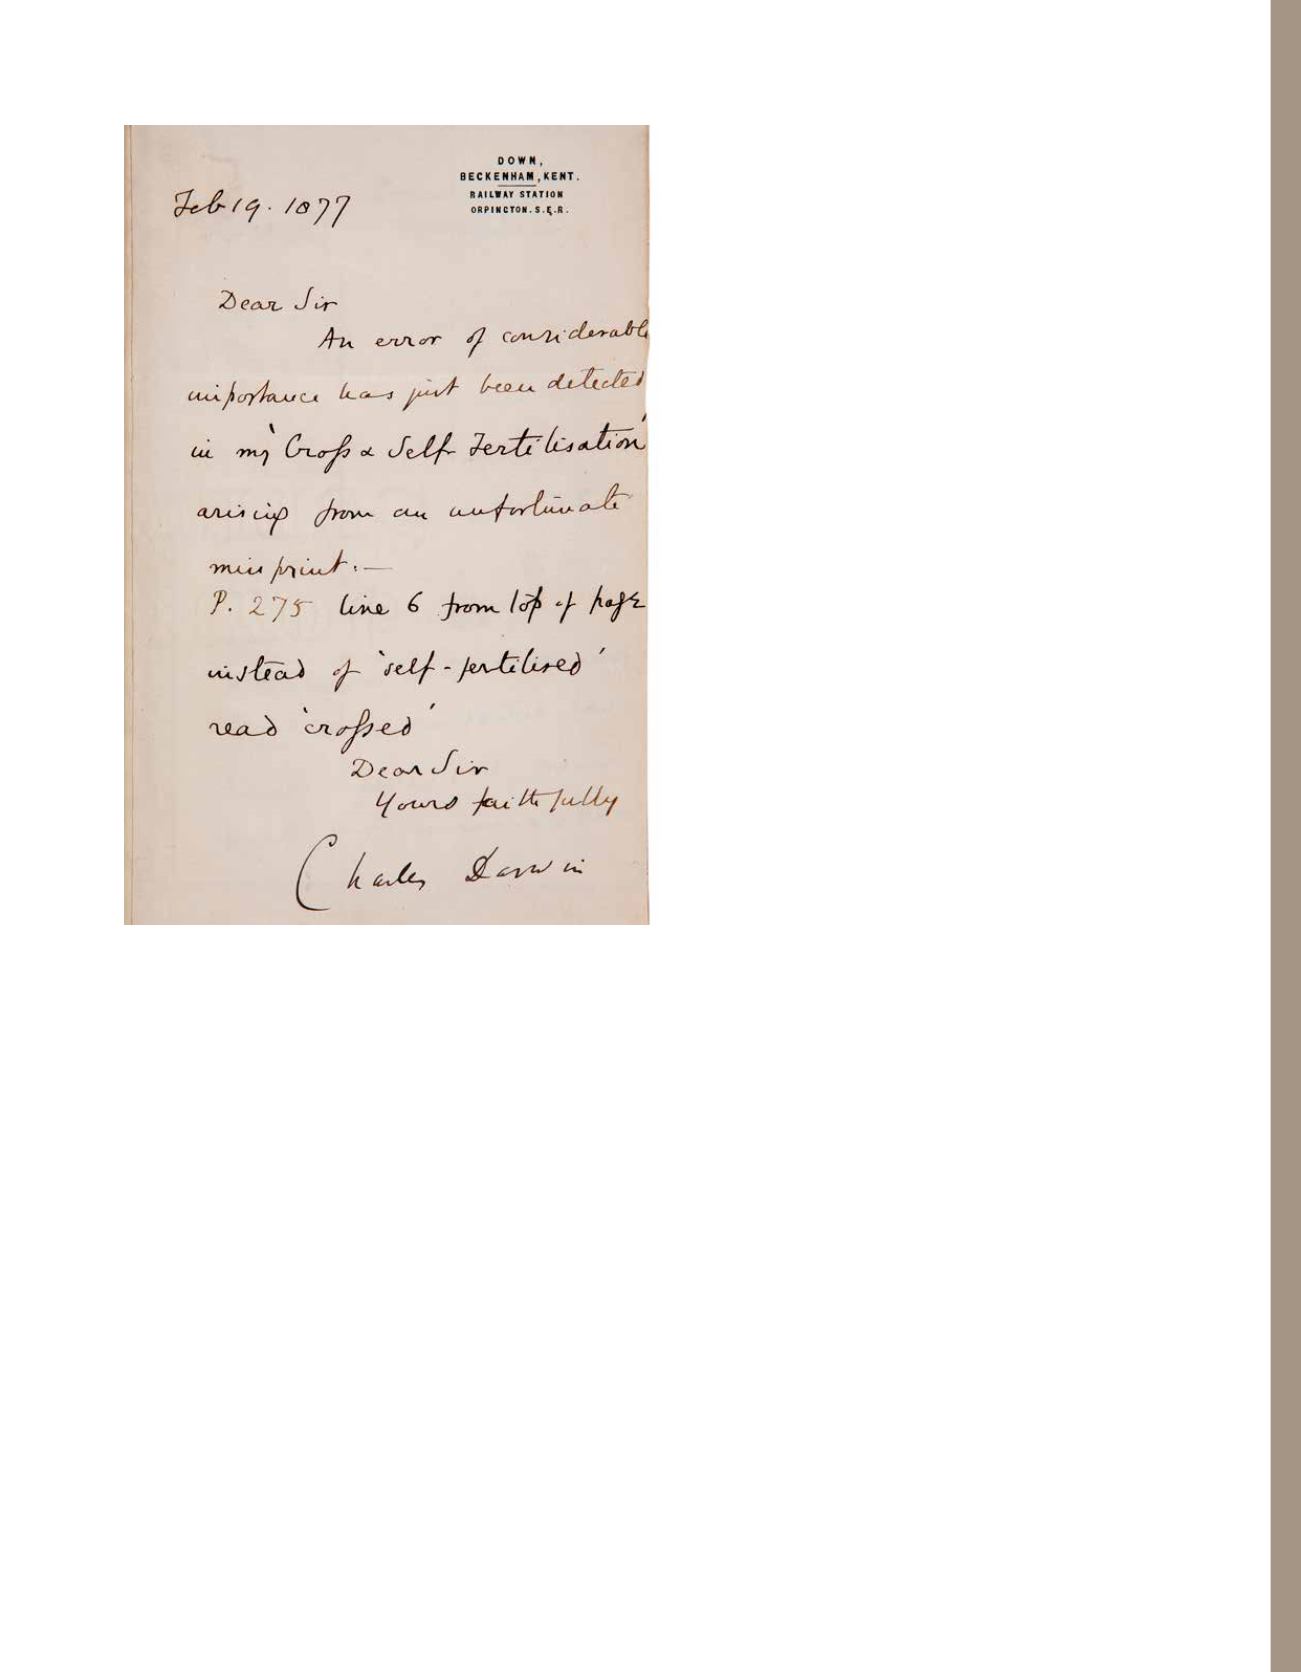 DOWN,
BECKENHAM, KENT.
RAILWAY STATION
ORPINGTON. S.E.R.
Feb 19. 1877
Dear Sir
An error of considerable
importance has just been detected
in my 'Cross & Self Fertilisation'
arising from an unfortunate
misprint.—
P. 275 line 6 from top of page
instead of 'self-fertilised'
read 'crossed'
Dear Sir
Yours faithfully
Charles Darwin